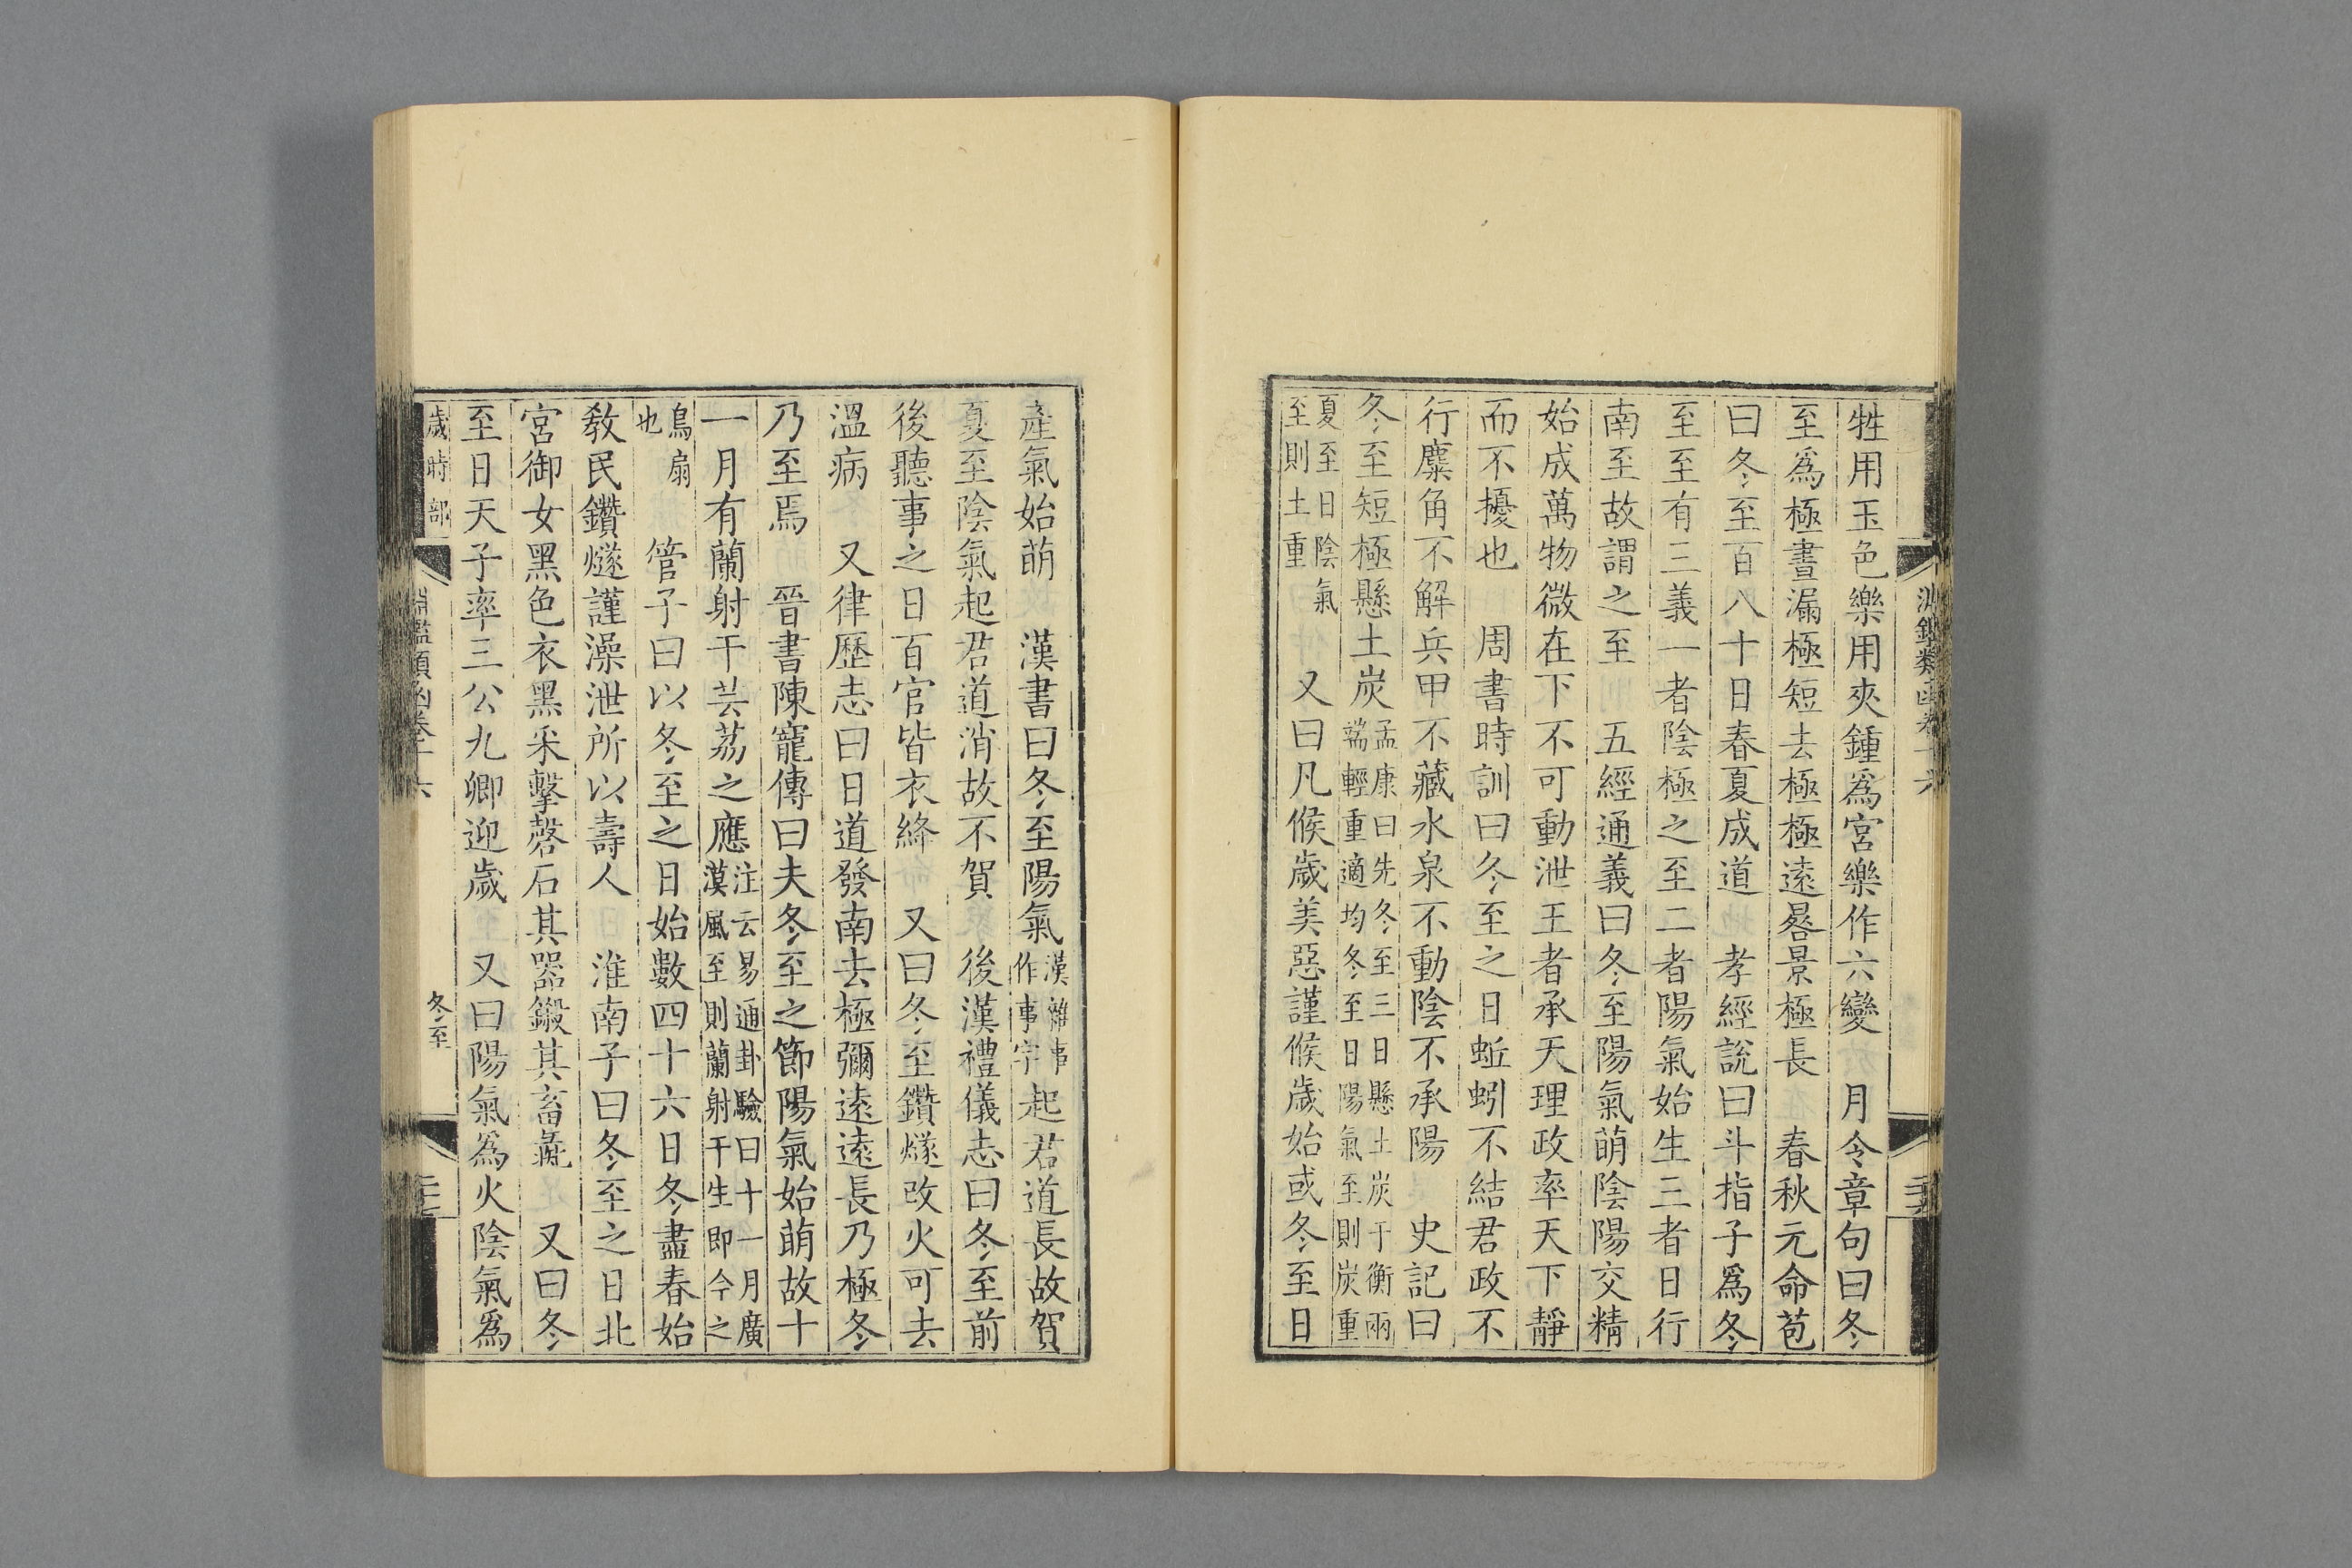 牲用玉色樂用夾鍾爲宮樂作六變　月令章句曰冬
至爲極晝漏極短去極極遠晷景極長　春秋元命苞
曰冬至百八十日春夏成道　孝經說曰斗指子爲冬
至至有三義一者陰極之至二者陽氣始生三者日行
南至故謂之至　五經通義曰冬至陽氣萌陰陽交精
始成萬物微在下不可動泄王者承天理政率天下靜
而不擾也　周書時訓曰冬至之日蚯蚓不結君政不
行麋角不解兵甲不藏水泉不動陰不承陽　史記曰
冬至短極懸土炭孟康曰先冬至三日懸土炭于衡兩端輕重適均冬至日陽氣至則炭重
夏至日陰氣至則土重　又曰凡候歲美惡謹候歲始或冬至日
產氣始萌　漢書曰冬至陽氣漢雜事作事字起君道長故賀
夏至陰氣起君道消故不賀　後漢禮儀志曰冬至前
後聽事之日百官皆衣絳　又曰冬至鑽燧改火可去
溫病　又律歷志曰日道發南去極彌遠遠長乃極冬
乃至焉　晉書陳寵傳曰夫冬至之節陽氣始萌故十
一月有蘭射干芸荔之應注云易通卦驗曰十一月廣漠風至則蘭射干生即今之
烏扇也　管子曰以冬至之日始數四十六日冬盡春始
教民鑽燧謹澡泄所以壽人　淮南子曰冬至之日北
宮御女黑色衣黑采擊磬石其器鍛其畜彘　又曰冬
至日天子率三公九卿迎歲　又曰陽氣爲火陰氣爲
歲時部
冬至